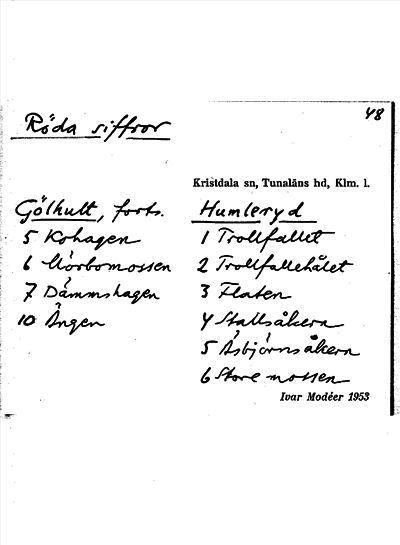 48
Röda siffror
Kristdala sn, Tunaläns hd, Klm. l.
Gölhult, forts.
5 Kohagen
6 Mörbomossen
7 Dammshagen
10 Ängen
Humleryd
1 Trollfallet
2 Trollfallehålet
3 Flaten
4 Stallsåkern
5 Åsbjörnsåkern
6 Store mossen
Ivar Modéer 1953